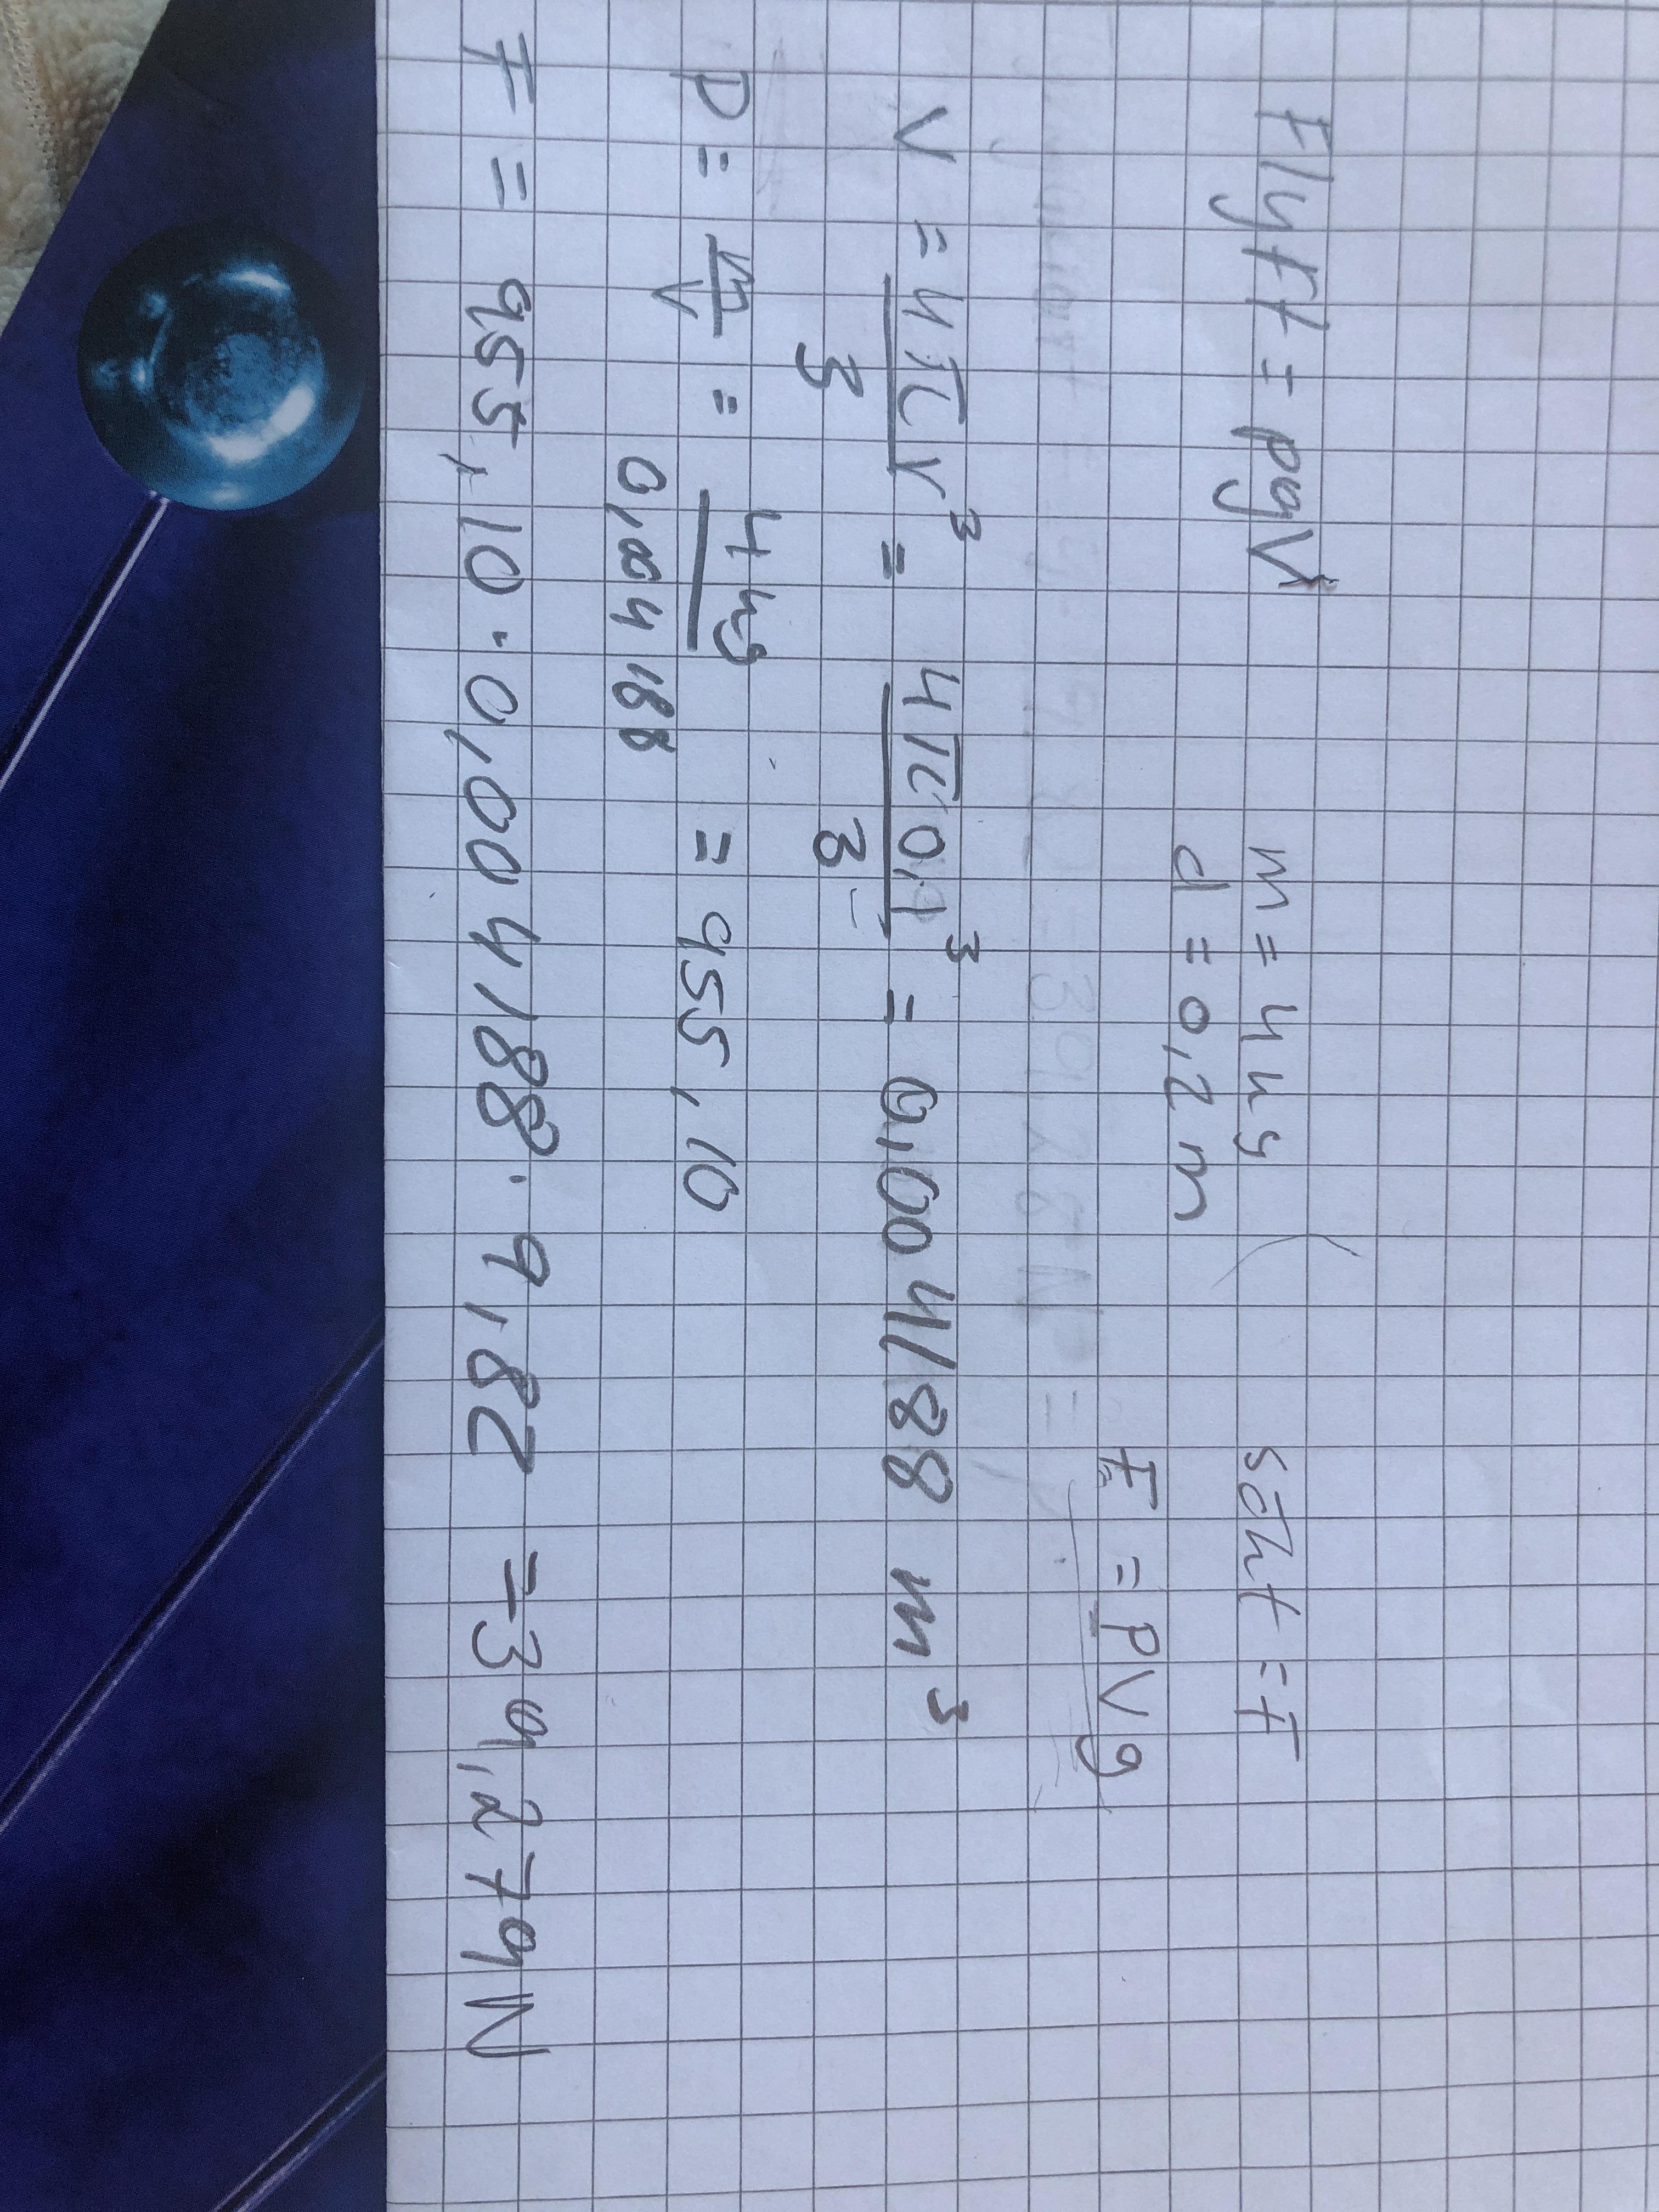 Flyft = ρgV
m = 4 kg
sökt = F
d = 0,2 m
F = ρVg
V = 4πr³ / 3 = 4π0,1³ / 3 = 0,004188 m³
ρ = m / V = 4 kg / 0,004188 = 955,10
F = 955,10 · 0,004188 · 9,82 = 39,279 N